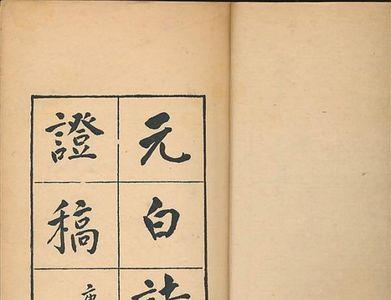 元白詩
證稿